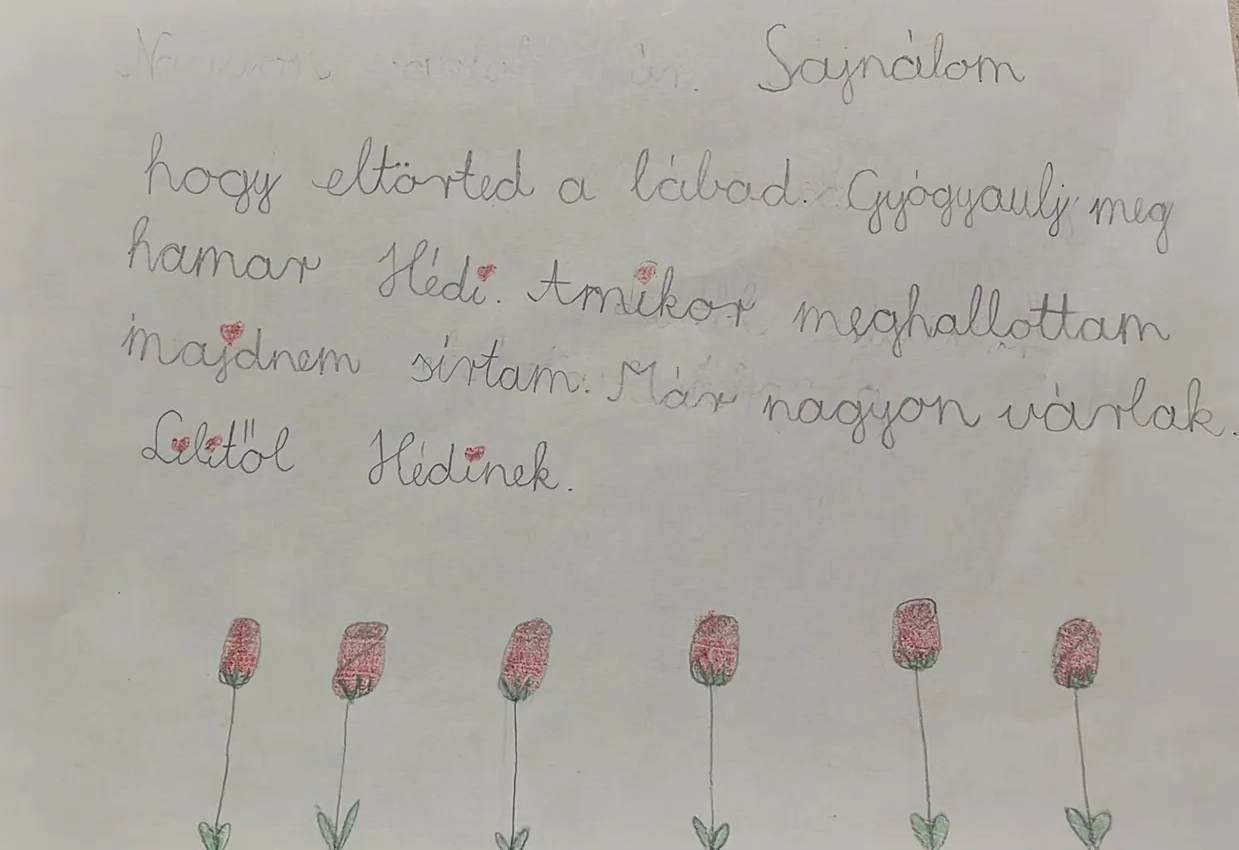 Sajnálom
hogy eltörted a lábad. Gyógyaulj meg
hamar Hédi. Amikor meghallottam
majdnem sírtam. Már nagyon várlak.
Lilitől Hédinek.